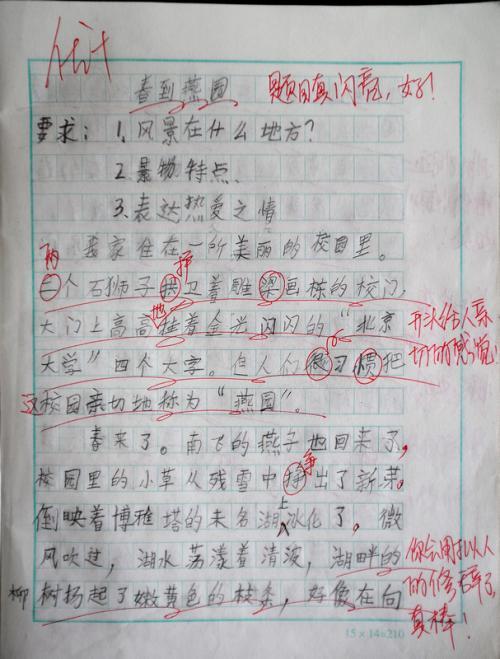 春到燕园
题目真闪亮，好！
要求：1、风景在什么地方？
2、景物特点、
3、表达热爱之情
我家住在一所美丽的校园里。
两 护
二个石狮子拱卫着雕梁画栋的校门，
地
大门上高高挂着金光闪闪的“北京
开头给人亲
大学”四个大字。但人们很习惯把
切的感觉！
汉校园亲切地称为“燕园”。
春来了。南飞的燕子也回来了，
争
校园里的小草从残雪中挣出了新芽。
上
倒映着博雅塔的未名湖冰化了。微
风吹过，湖水荡漾着清波，湖畔的
你会用拟人
柳树扬起了嫩黄色的枝条，好像在向
的修辞了，
真棒！
15×14=210